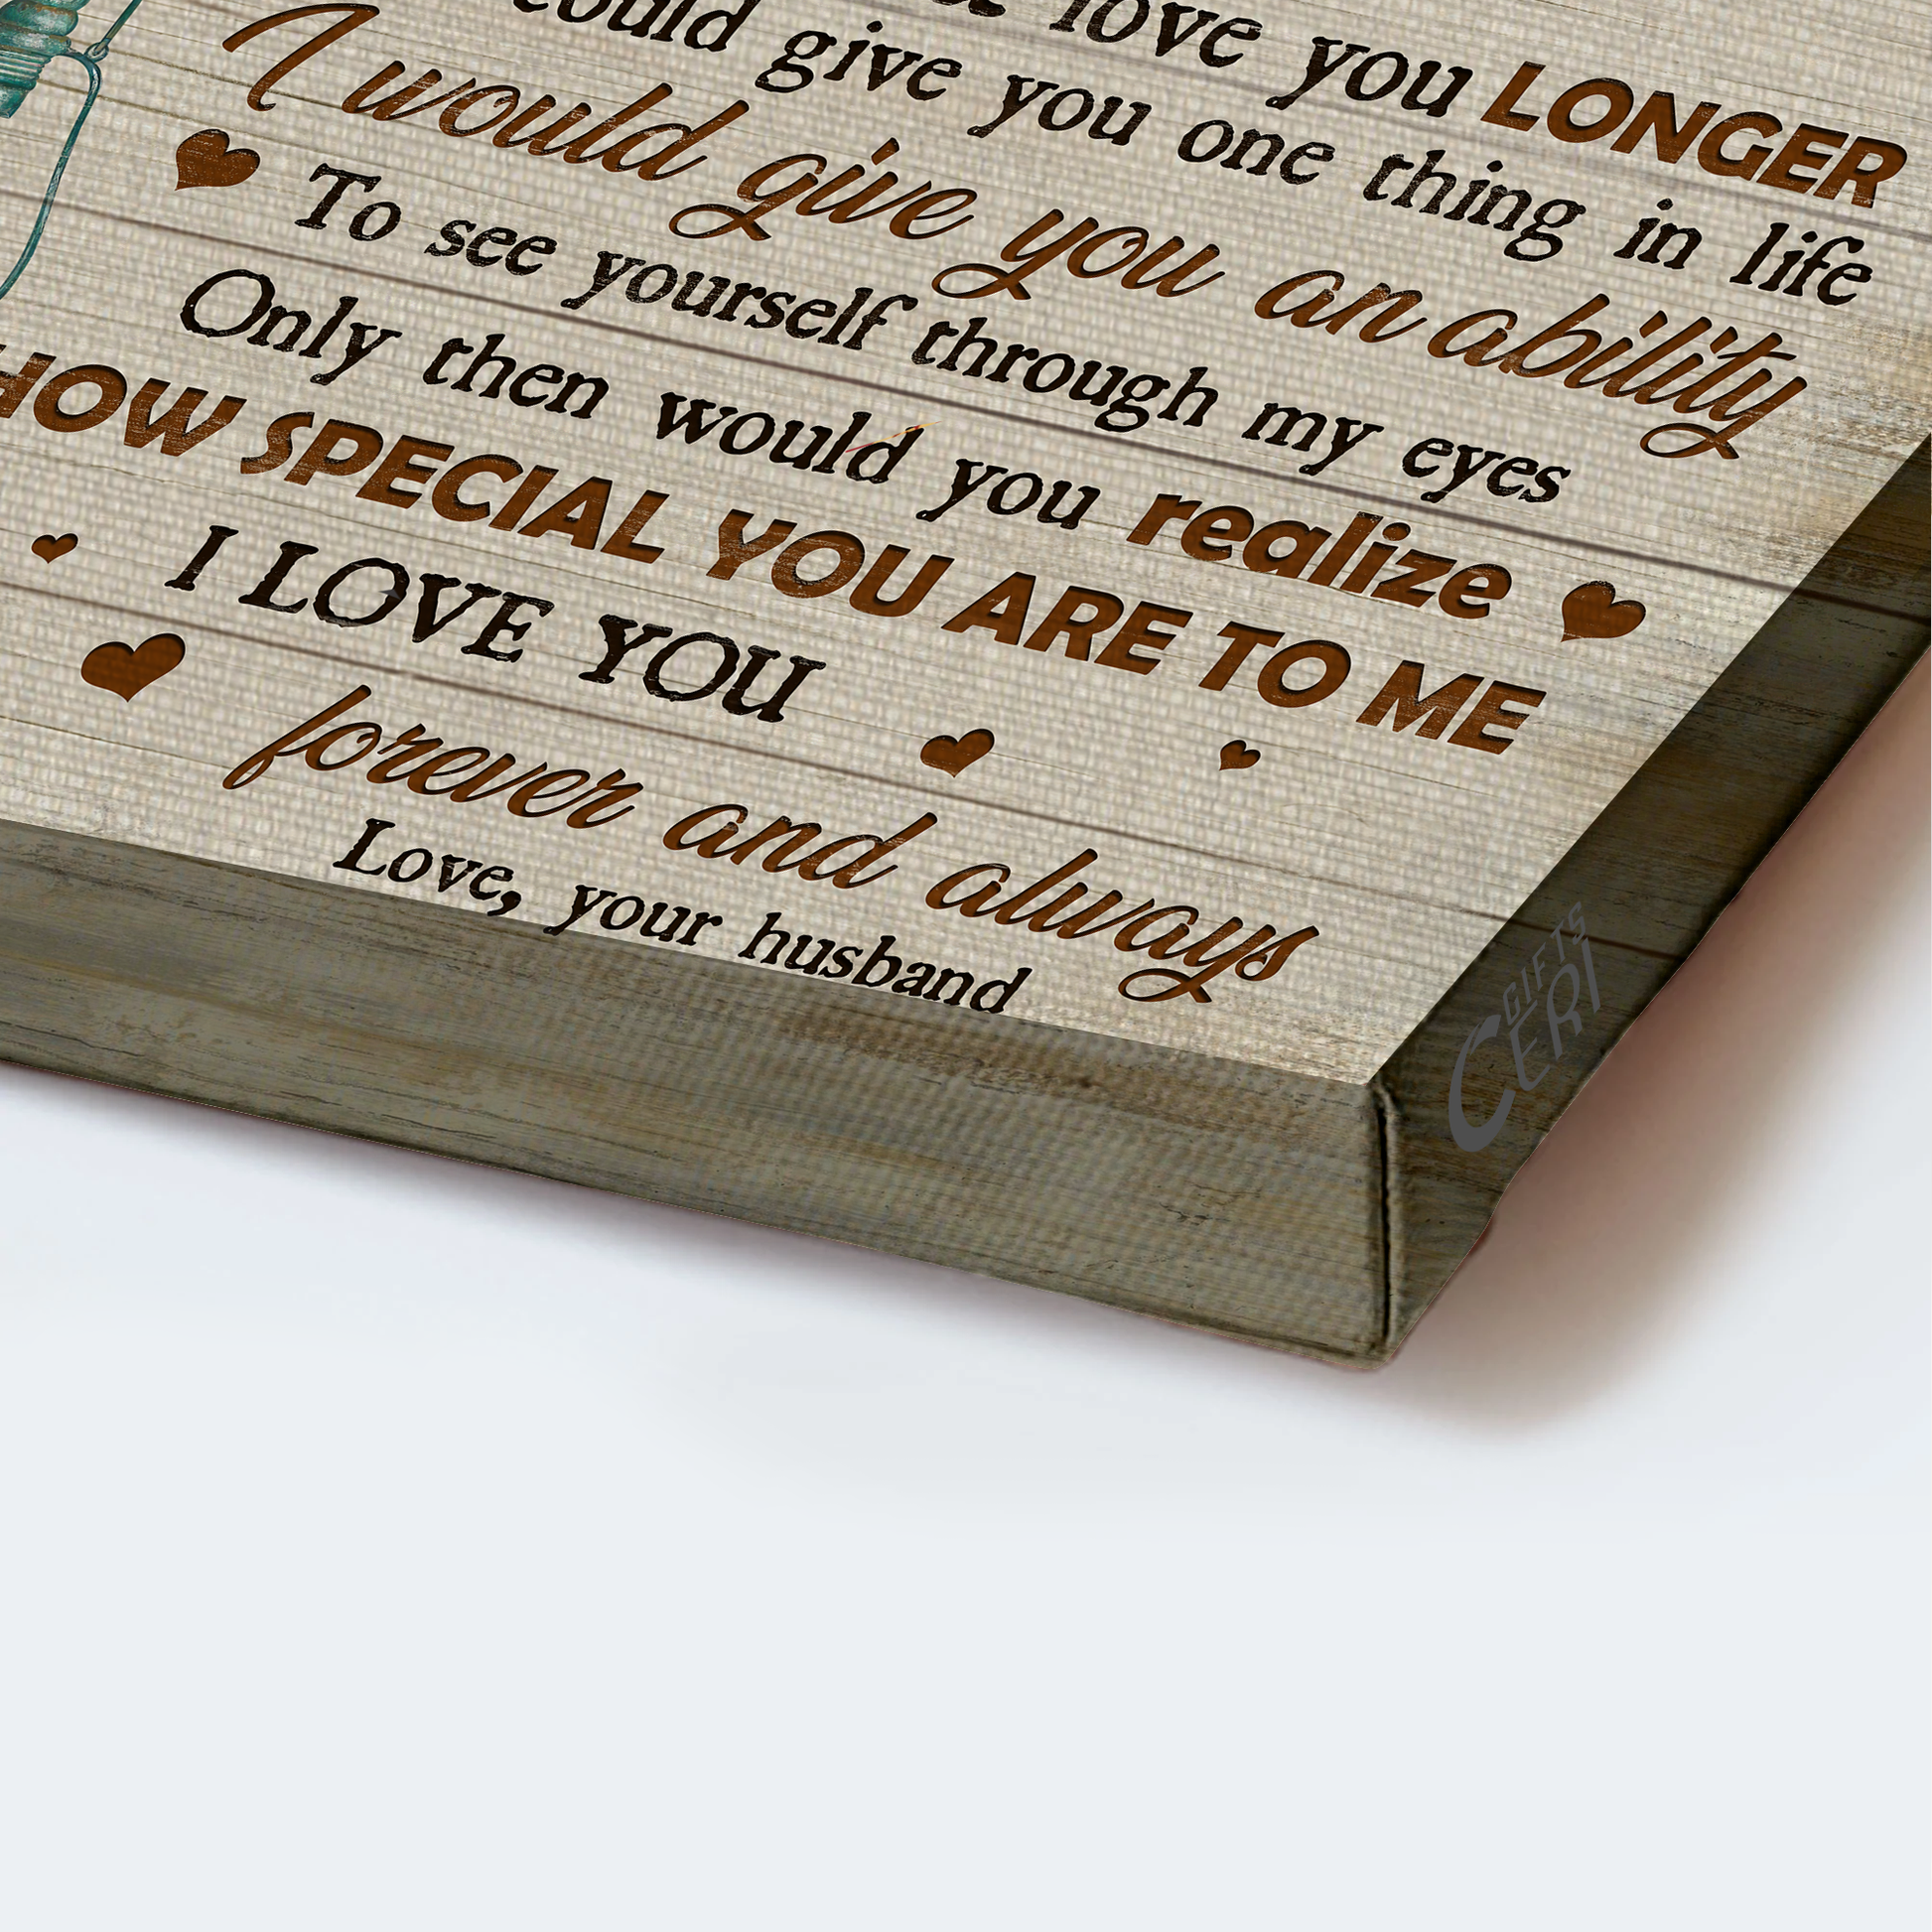 love you LONGER
could give you one thing in life
I would give you an ability
To see yourself through my eyes
Only then would you realize
HOW SPECIAL YOU ARE TO ME
I LOVE YOU
forever and always
Love, your husband
GIFTS
CERI